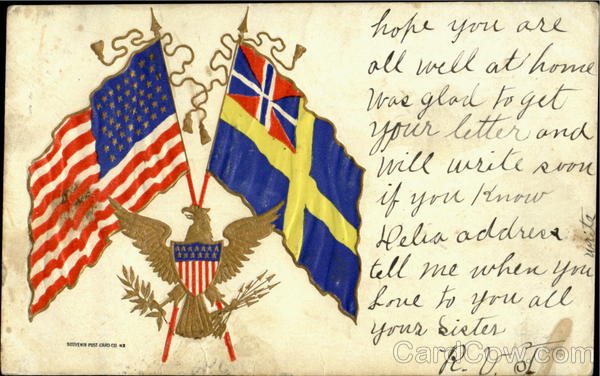 hope you are
all well at home
was glad to get
your letter and
will write soon
if you know
Delia address
tell me when you
write
Love to you all
your sister
R. V. St
SOUVENIR POST CARD CO. N.Y.
CardCow.com